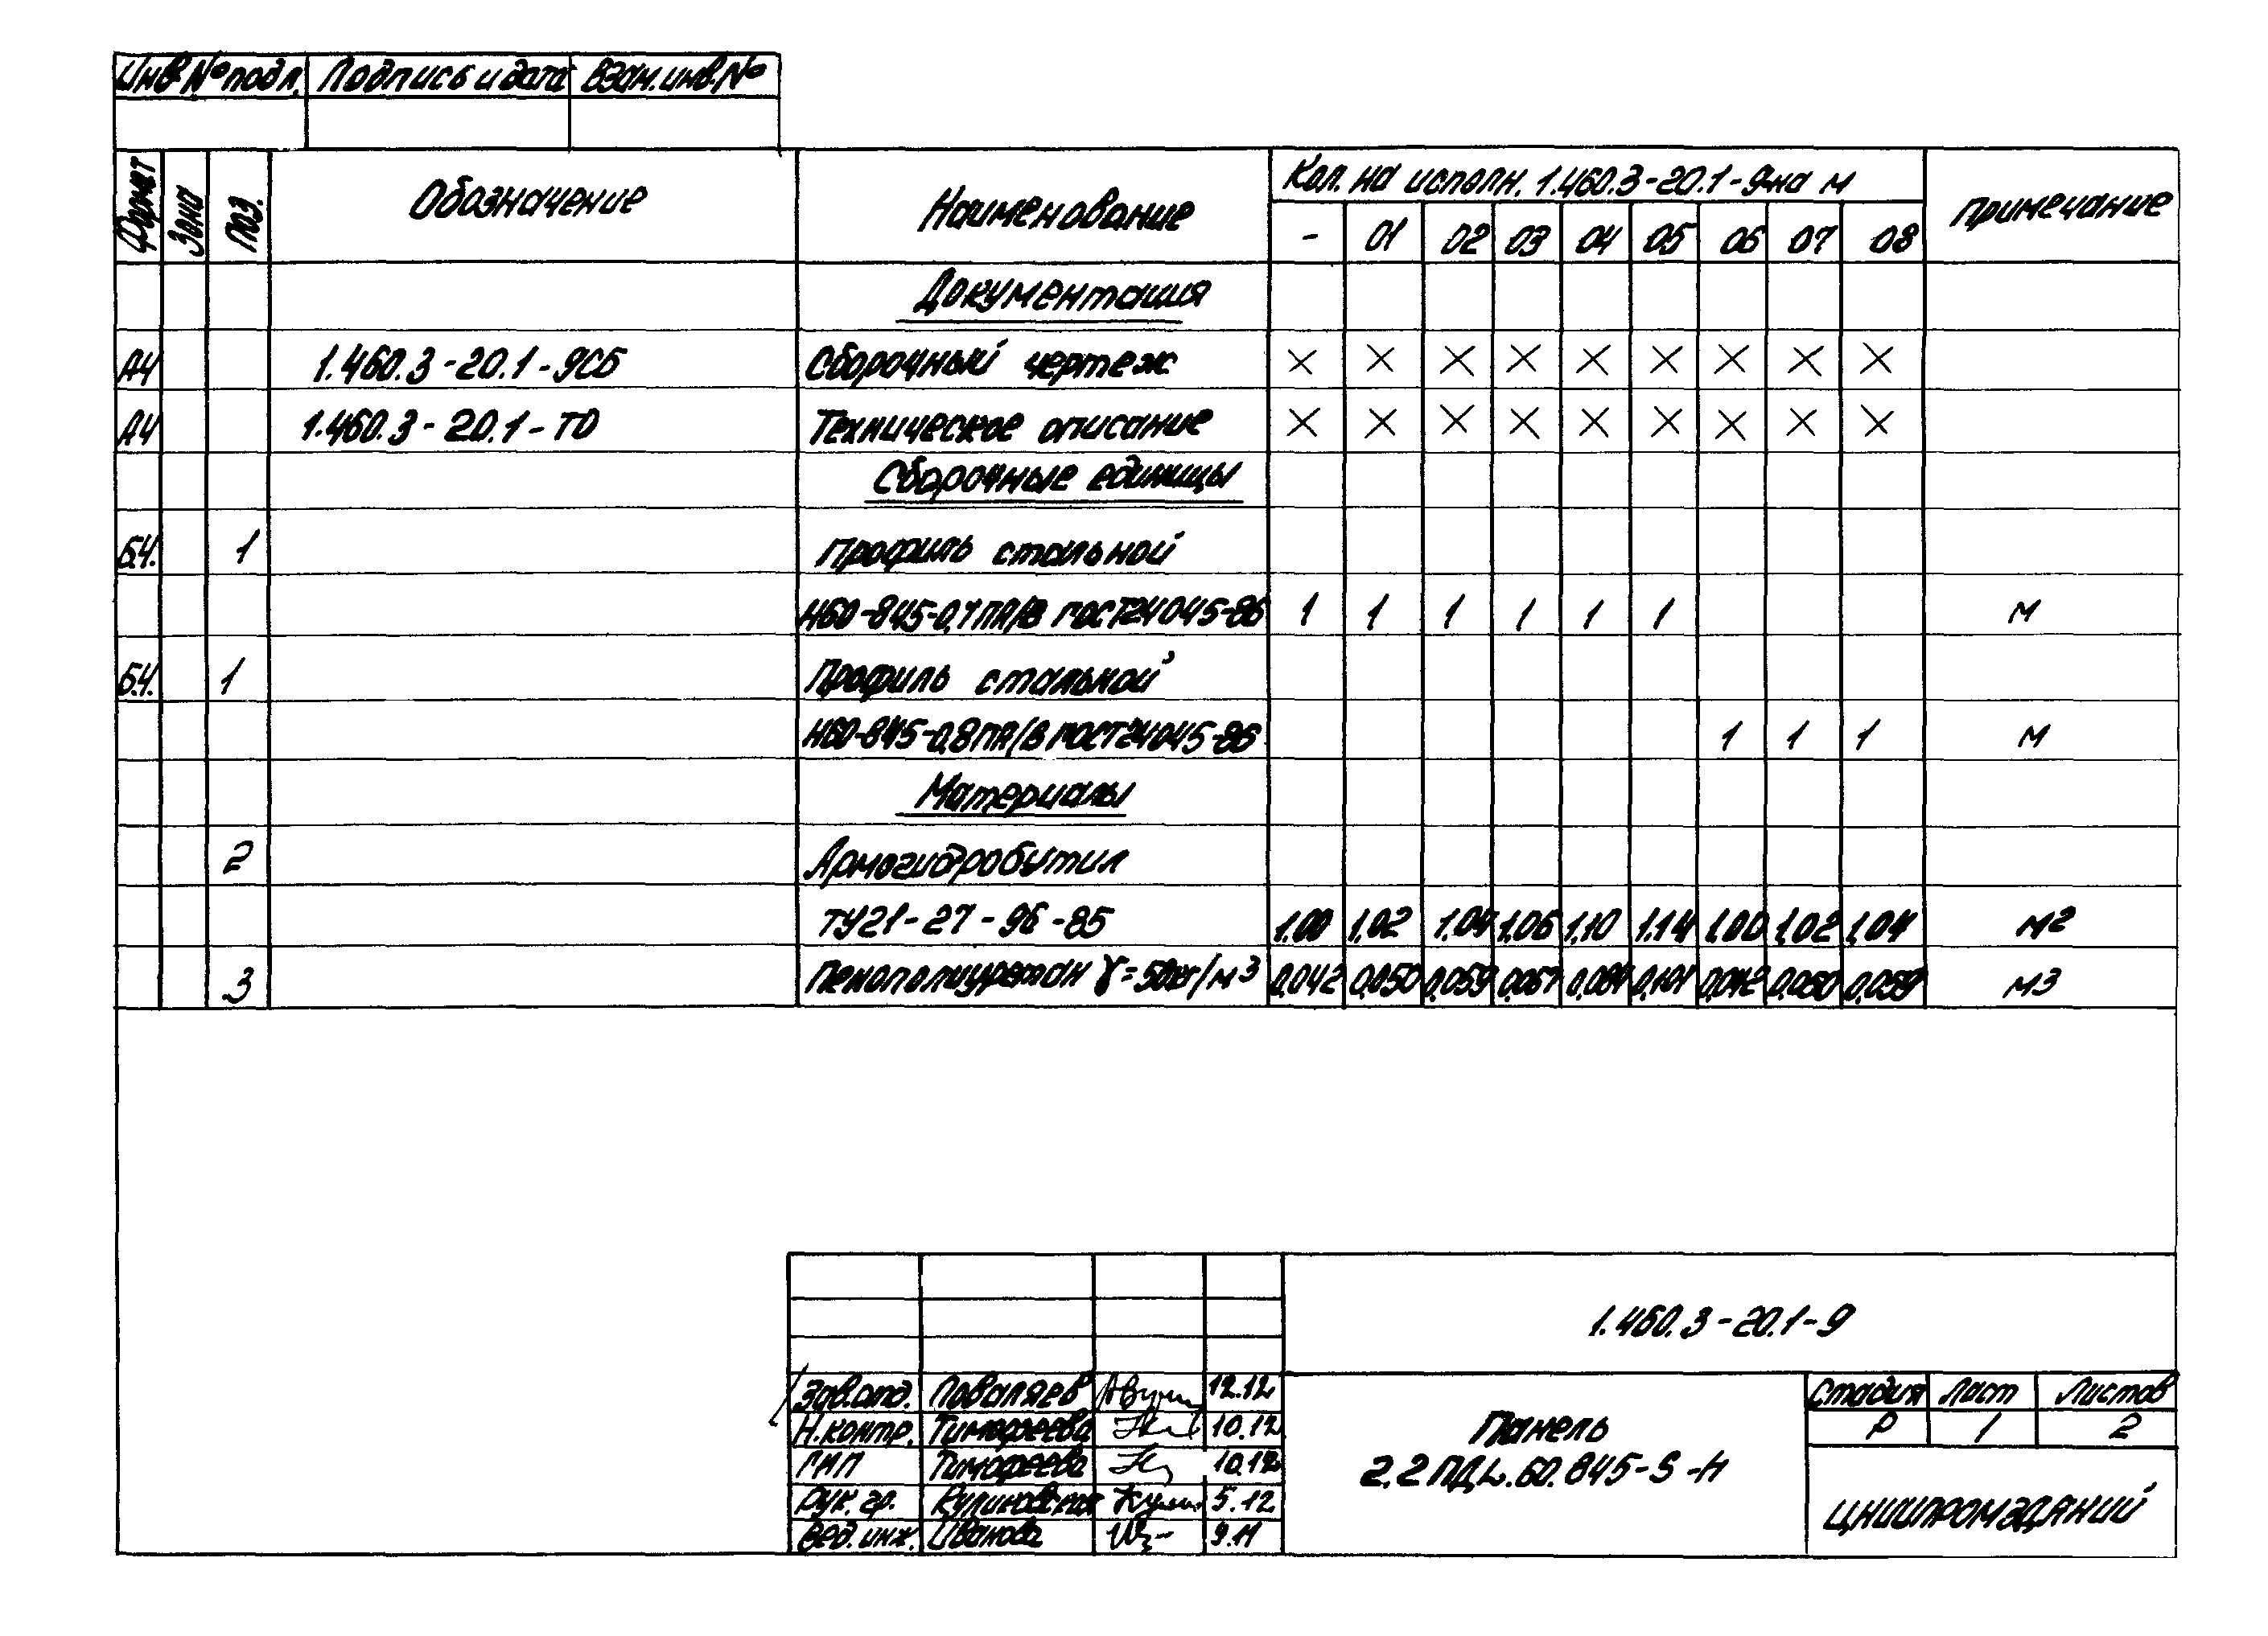 Инв.№подл. Подпись и дата Взам.инв.№
Формат Зона Поз. Обозначение Наименование Кол. на исполн. 1.460.3-20.1-9 на м Примечание
- 01 02 03 04 05 06 07 08
Документация
А4 1.460.3-20.1-9СБ Сборочный чертеж × × × × × × × × ×
А4 1.460.3-20.1-ТО Техническое описание × × × × × × × × ×
Сборочные единицы
Б.Ч. 1 Профиль стальной
Н60-845-0,7ПА/В ГОСТ24045-86 1 1 1 1 1 1 м
Б.Ч. 1 Профиль стальной
Н60-845-0,8ПА/В ГОСТ24045-86 1 1 1 м
Материалы
2 Армогидробутил
ТУ21-27-96-85 1.00 1.02 1.04 1.06 1.10 1.14 1.00 1,02 1,04 м2
3 Пенополиуретан γ=50кг/м3 0,042 0,050 0,059 0,067 0,084 0,101 0,042 0,050 0,059 м3
1.460.3-20.1-9
Зав.отд. Поваляев 12.12
Н.контр. Тимофеева 10.12
ГИП Тимофеева 10.12
Рук.гр. Кулиновская 5.12
Вед.инж. Иванова 9.11
Панель
2.2ПДL.60.845-S-Н
Стадия Лист Листов
Р 1 2
ЦНИИПРОМЗДАНИЙ